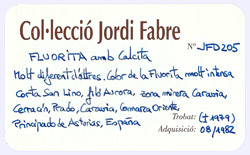 Col·lecció Jordi Fabre
Nº JFD205
FLUORITA amb Calcita
Molt diferent d'altres. Color de la Fluorita molt intensa
Corta San Lino, filó Aurora, zona minera Caravia,
Cerracín, Prado, Caravia, Comarca Oriente,
Principado de Asturias, España
Trobat: († 1979)
Adquisició: 08/1982